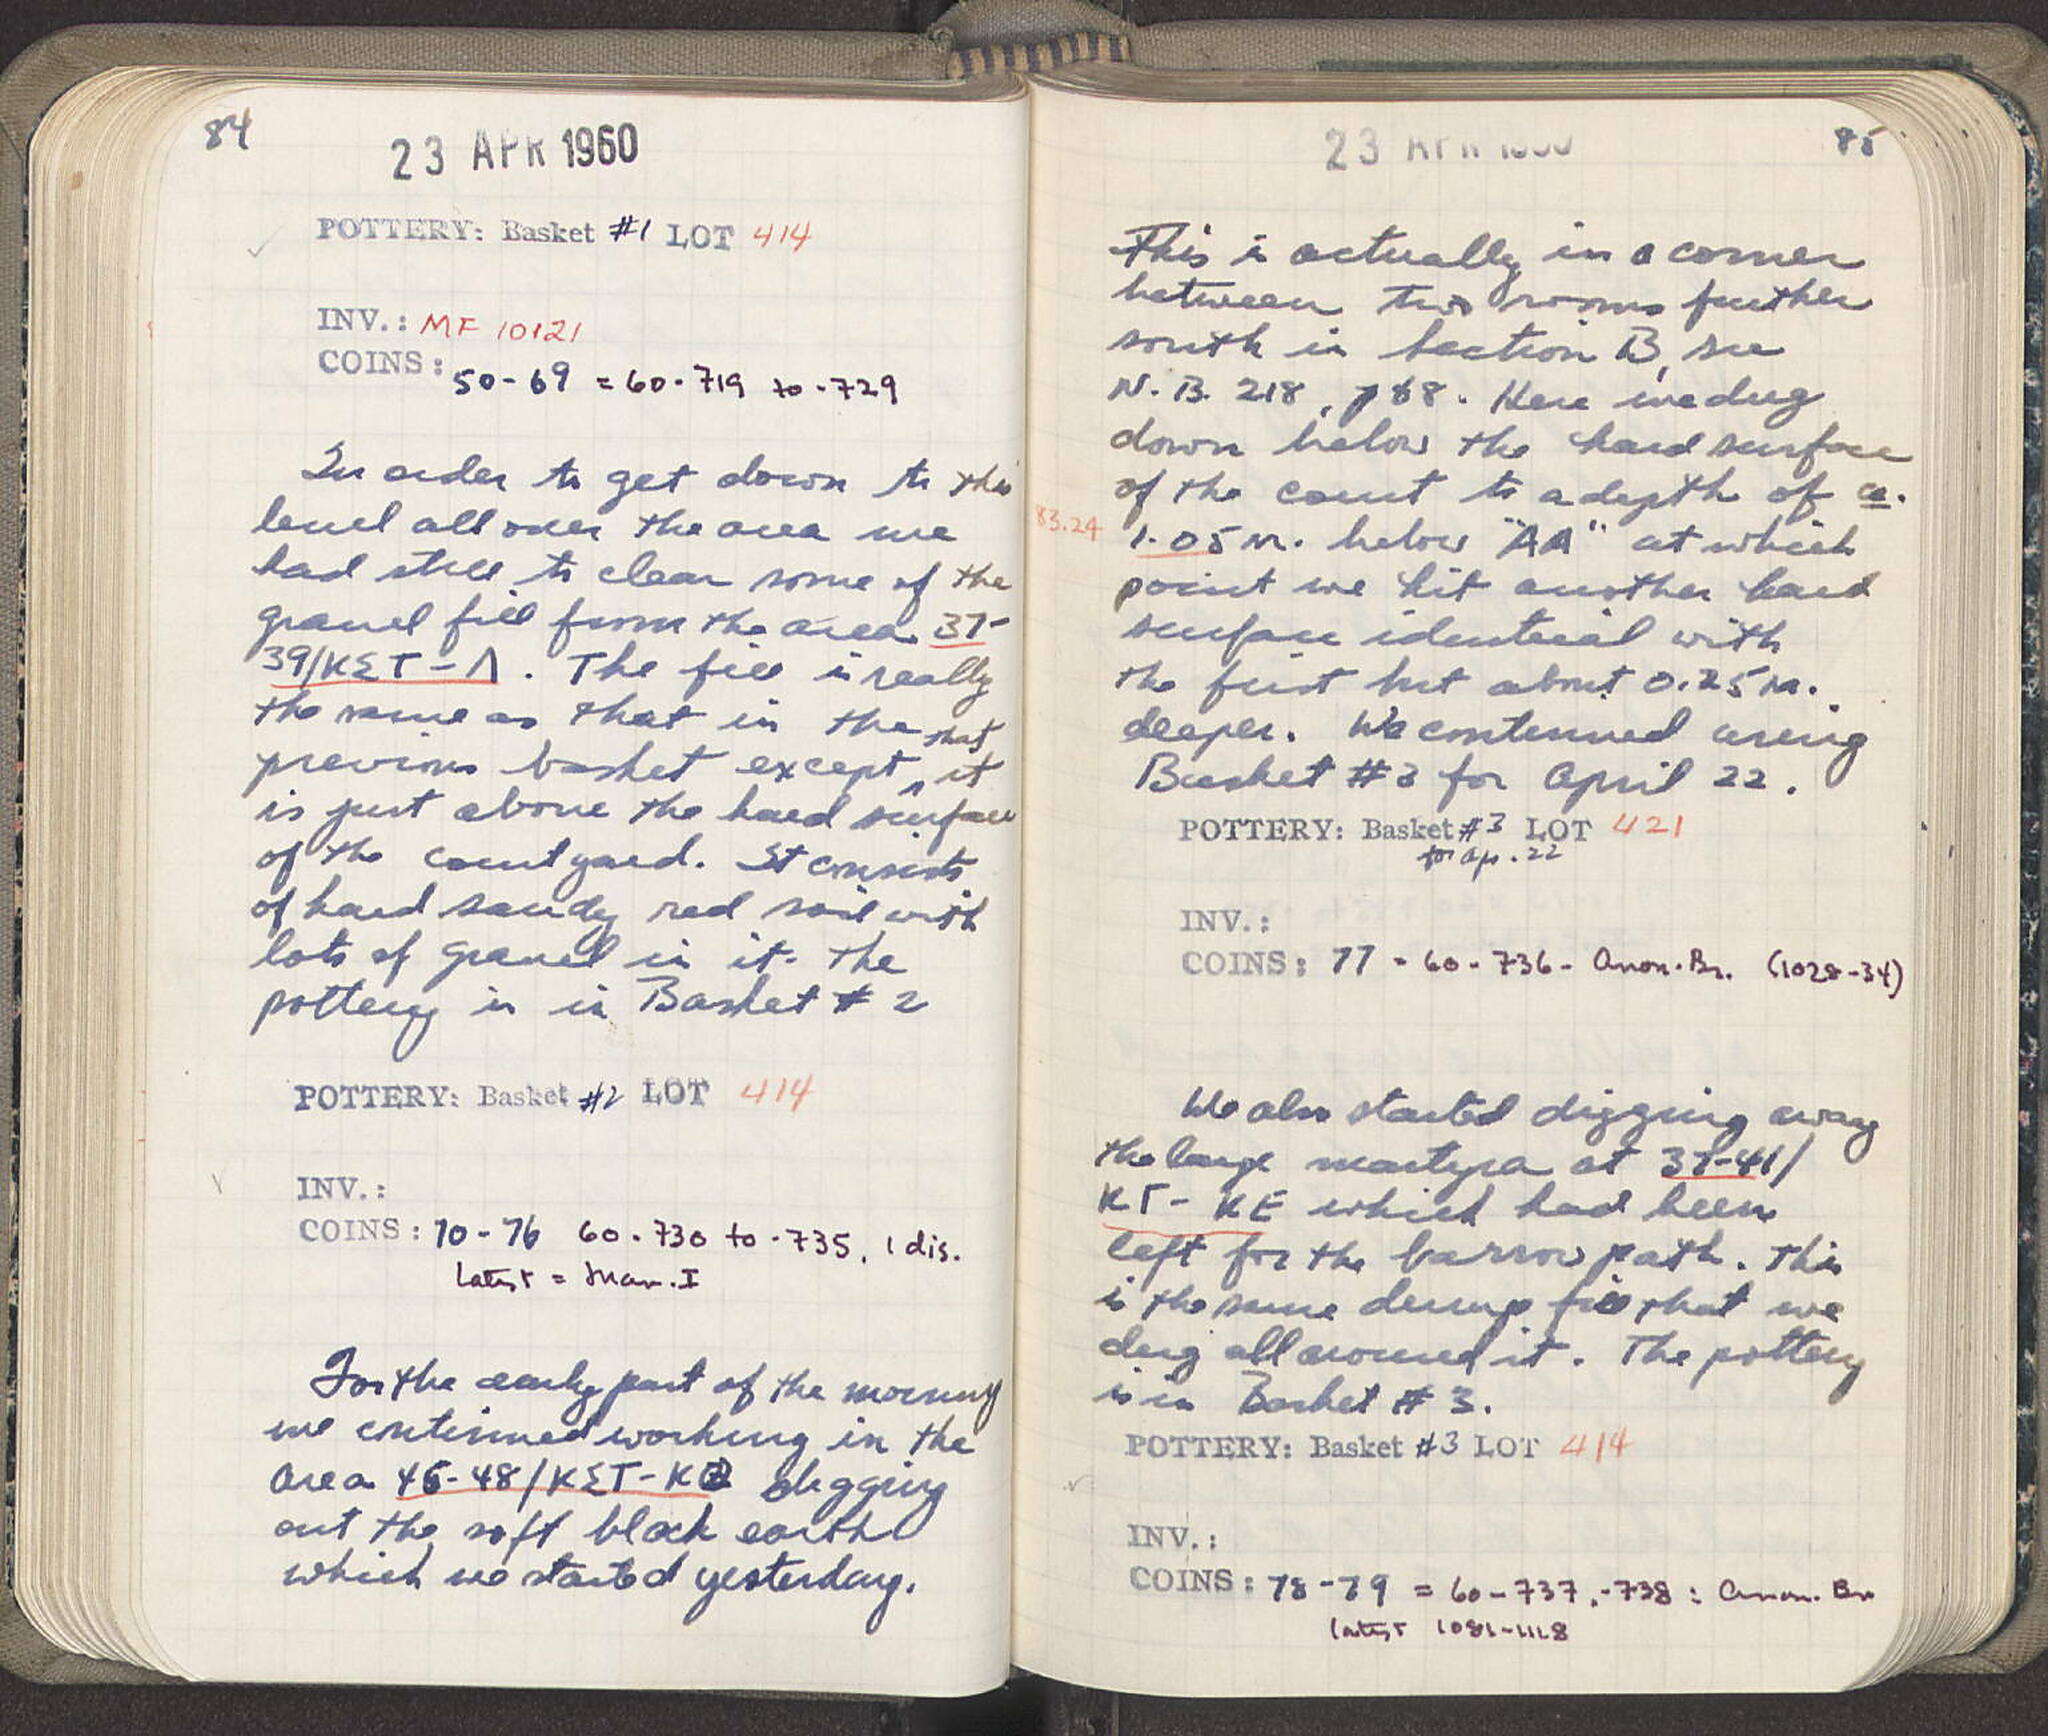 84
23 APR 1960
POTTERY: Basket #1 LOT 414
INV.: MF 10121
COINS: 50-69 = 60-719 to -729
In order to get down to this
level all over the area we
had still to clear some of the
gravel fill from the area 37-
39/KΣT-Λ. The fill is really
the same as that in the
previous basket except that it
is just above the hard surface
of the courtyard. It consists
of hard sandy red soil with
lots of gravel in it. The
pottery is in Basket #2
POTTERY: Basket #2 LOT 414
INV.:
COINS: 70-76 60-730 to -735, 1 dis.
Latest = Man. I
For the early part of the morning
we continued working in the
area 46-48/KΣT- digging
out the soft black earth
which we started yesterday.
85
23 APR 1960
This is actually in a corner
between two rooms further
south in Section B, see
N.B. 218, p 88. Here we dug
down below the hard surface
of the court to a depth of ca.
83.24 1.05 m. below "AA" at which
point we hit another hard
surface identical with
the first but about 0.25 m.
deeper. We continued using
Basket #3 for April 22.
POTTERY: Basket #3 LOT 421
for Ap. 22
INV.:
COINS: 77 = 60-736- Anon. Br. (1028-34)
We also started digging away
the large martyra at 37-41/
KΓ-KE which had been
left for the barrow path. This
is the same dump fill that we
dug all around it. The pottery
is in Basket #3.
POTTERY: Basket #3 LOT 414
INV.:
COINS: 78-79 = 60-737, -738: Anon. Br
latest 1081-1118